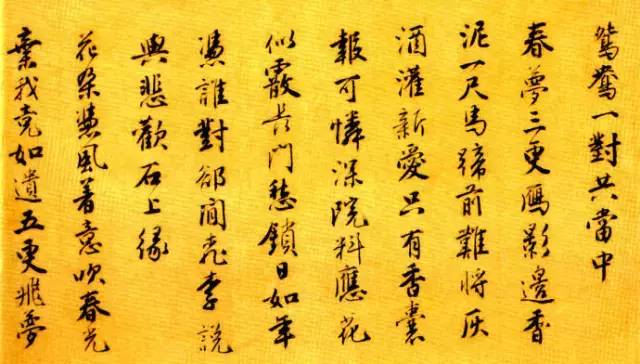 鴛鴦一對共當中
春夢三更雁影邊香
泥一尺馬蹄前難將灰
酒灌新愛只有香囊
報可憐深院料應花
似霰長門愁鎖日如年
憑誰對卻閒桃李說
與悲歡石上緣
花朵慧風著意吹春光
棄我竟如遺五更飛夢